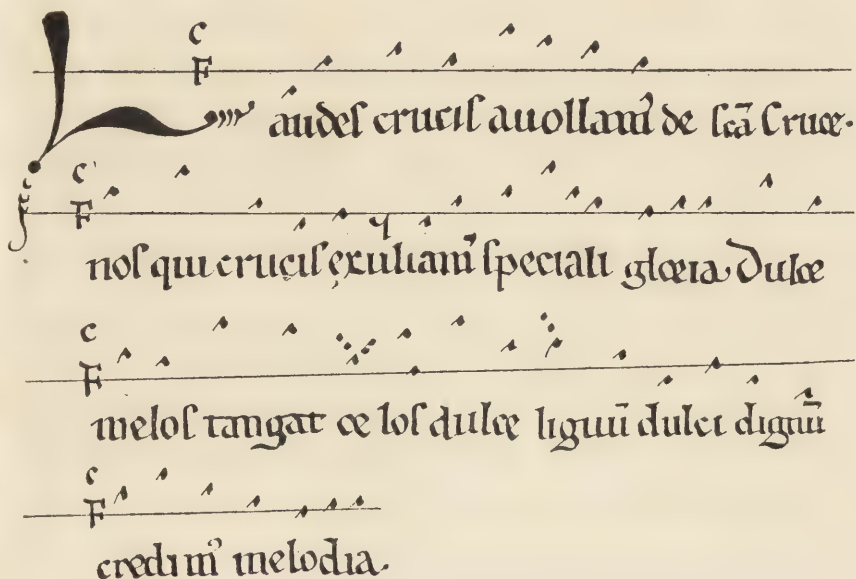 C
F
Laudes crucis attollam᾿ de scā Cruce.
C
F
nos qui crucis exultam᾿ speciali gloria Dulce
C
F
melos tangat ce los dulce lignū dulci dignū
C
F
credim᾿ melodia.